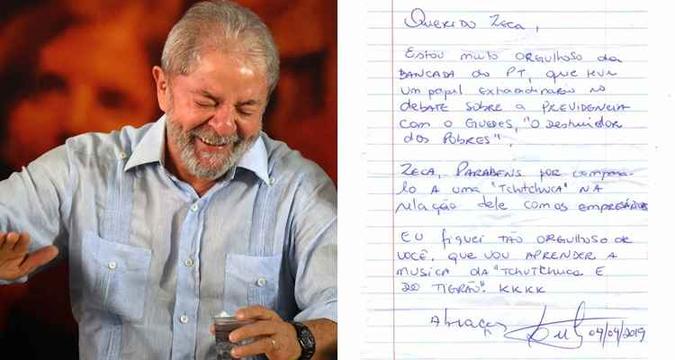 QUERIDO ZECA,
ESTOU MUITO ORGULHOSO DA
BANCADA DO PT, QUE TEVE
UM PAPEL EXTRAORDINARIO NO
DEBATE SOBRE A PREVIDENCIA
COM O GUEDES, "O DESTRUIDOR
DOS POBRES".
ZECA, PARABENS POR COMPARA-
LO A UMA "TCHUTCHUCA" NA
RELAÇÃO DELE COM OS EMPRESÁRIOS
EU FIQUEI TÃO ORGULHOSO DE
VOCÊ, QUE VOU APRENDER A
MUSICA DA "TCHUTCHUCA E
DO TIGRÃO". KKKK
Abraços 04/04/2019